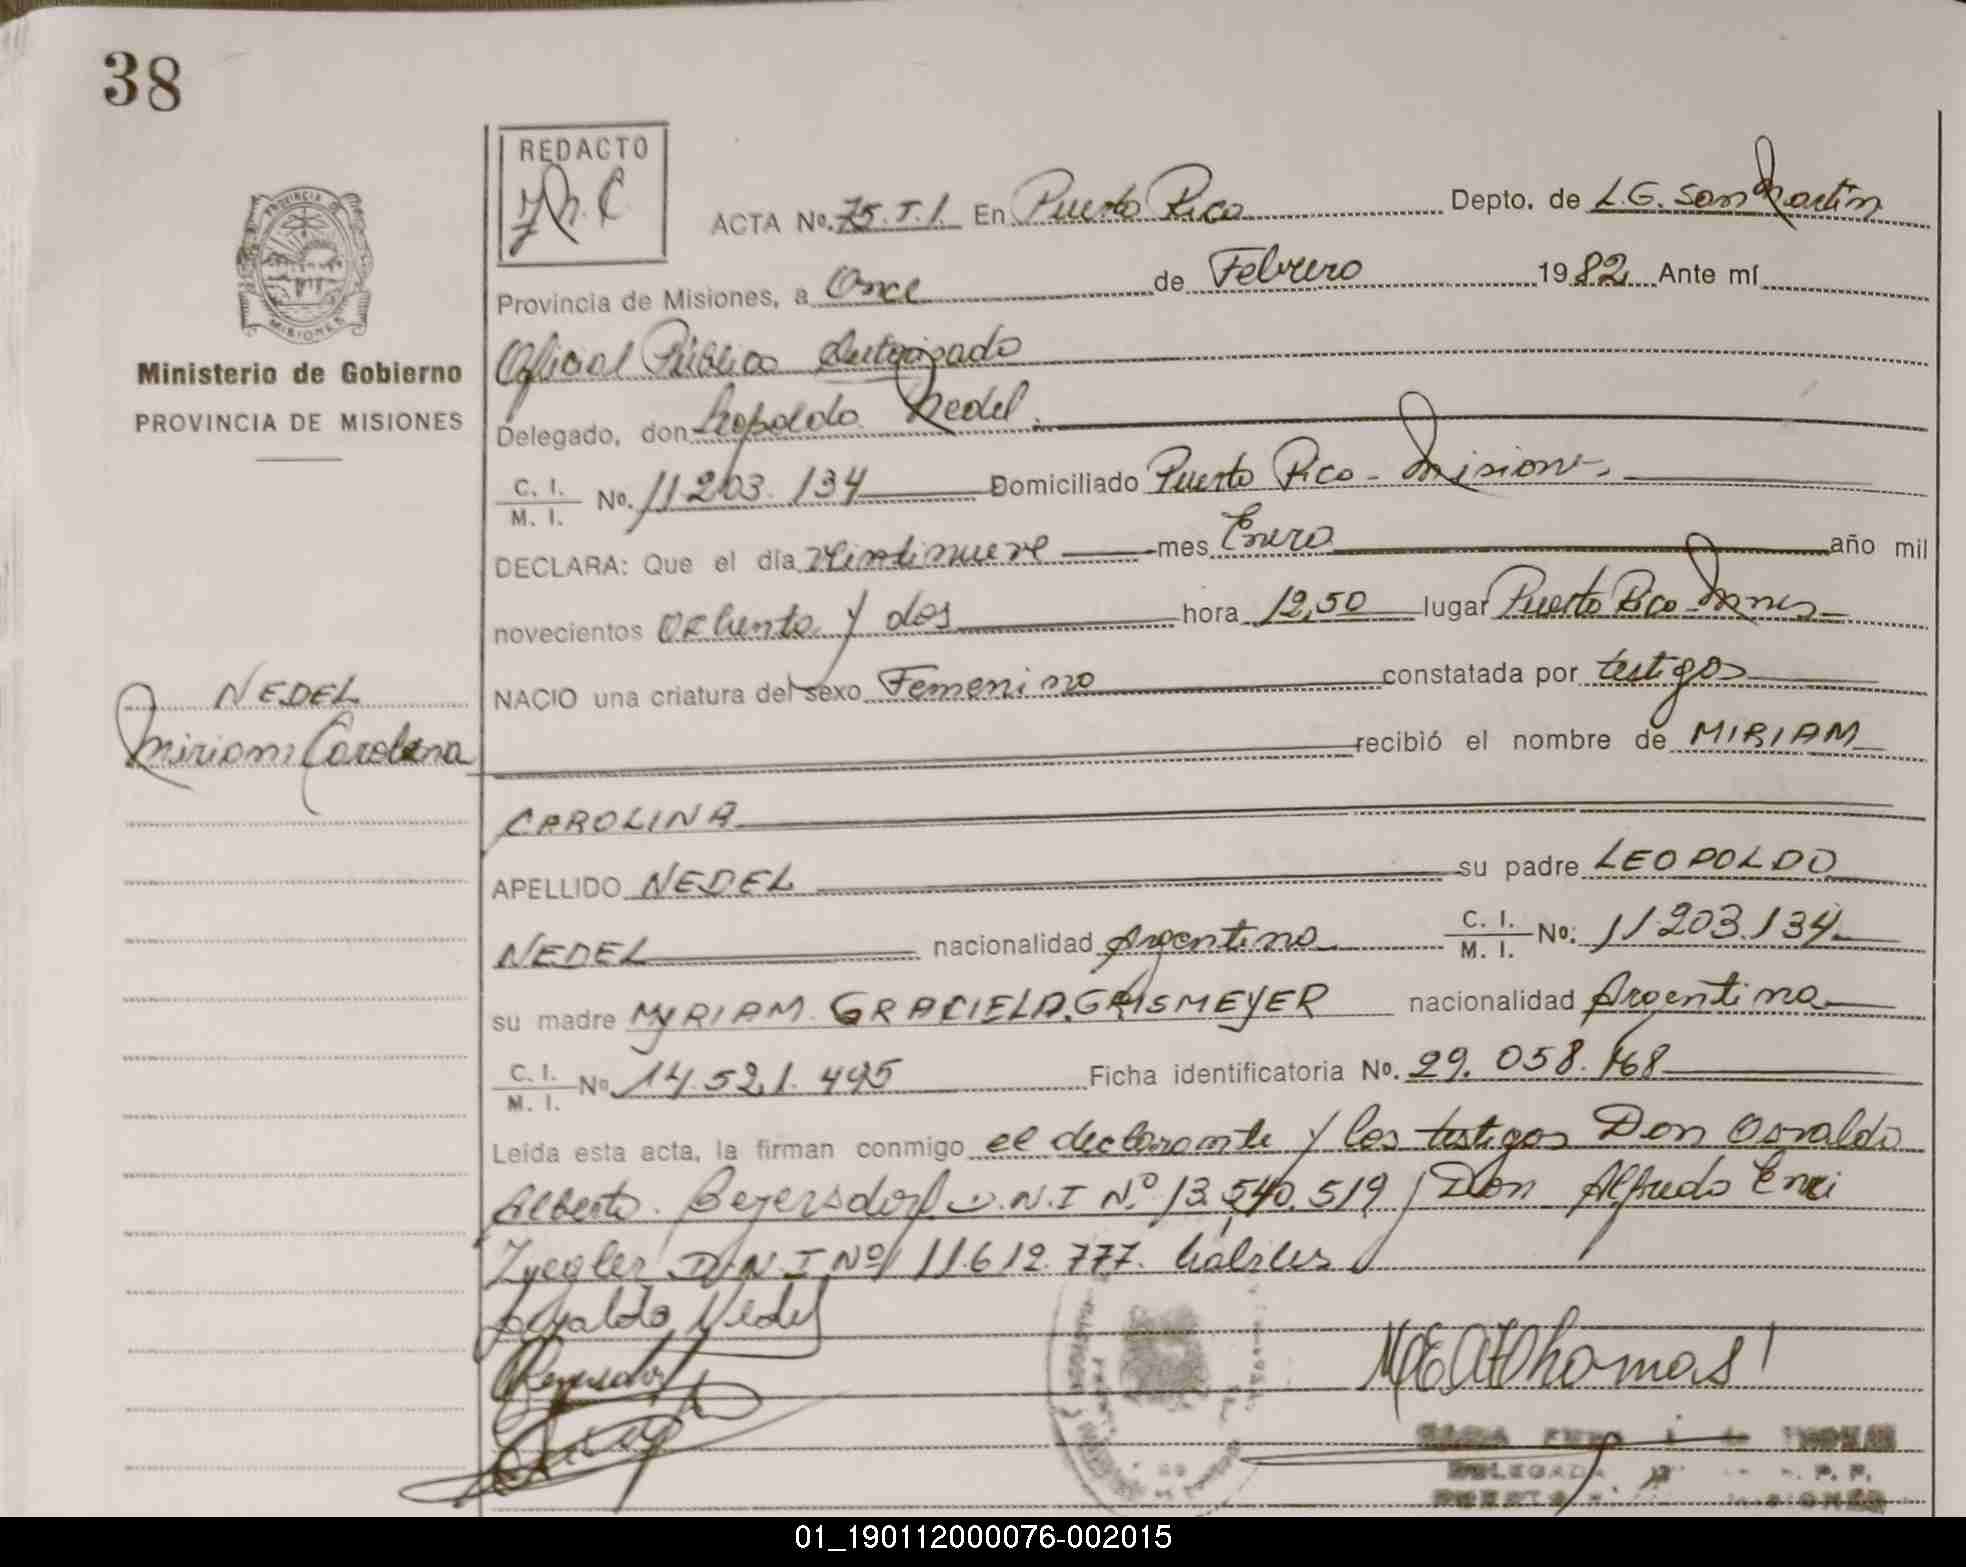 38
REDACTO
ACTA No. 75.T.I. En Puerto Rico Depto. de L.G. San Martín
Provincia de Misiones, a Once de Febrero 1982 Ante mí
Oficial Público Autorizado
PROVINCIA DE
MISIONES
Ministerio de Gobierno
PROVINCIA DE MISIONES
Delegado, don Leopoldo Nedel.
C. I.
M. I. No. 11.203.134 Domiciliado Puerto Rico - Misiones,
DECLARA: Que el día veintinueve mes Enero año mil
novecientos ochenta y dos hora 12,50 lugar Puerto Rico - Mnes
NACIO una criatura del sexo Femenino constatada por testigos
NEDEL
Miriam Carolina
recibió el nombre de MIRIAM
CAROLINA
APELLIDO NEDEL su padre LEOPOLDO
NEDEL nacionalidad Argentina C. I.
M. I. No: 11.203.134
su madre MYRIAM GRACIELA GRISMEYER nacionalidad Argentina
C. I.
M. I. No 14.521.495 Ficha identificatoria No. 29.058.168
Leída esta acta, la firman conmigo el declarante y los testigos Don Osvaldo
Alberto Beyersdorf D.N.I Nº 13.540.519 y Don Alfredo
Zyegler D.N.I Nº 11.612.777. hábiles
Leopoldo Nedel
Beyersdorf
Thomas
DELEGADA
01_190112000076-002015